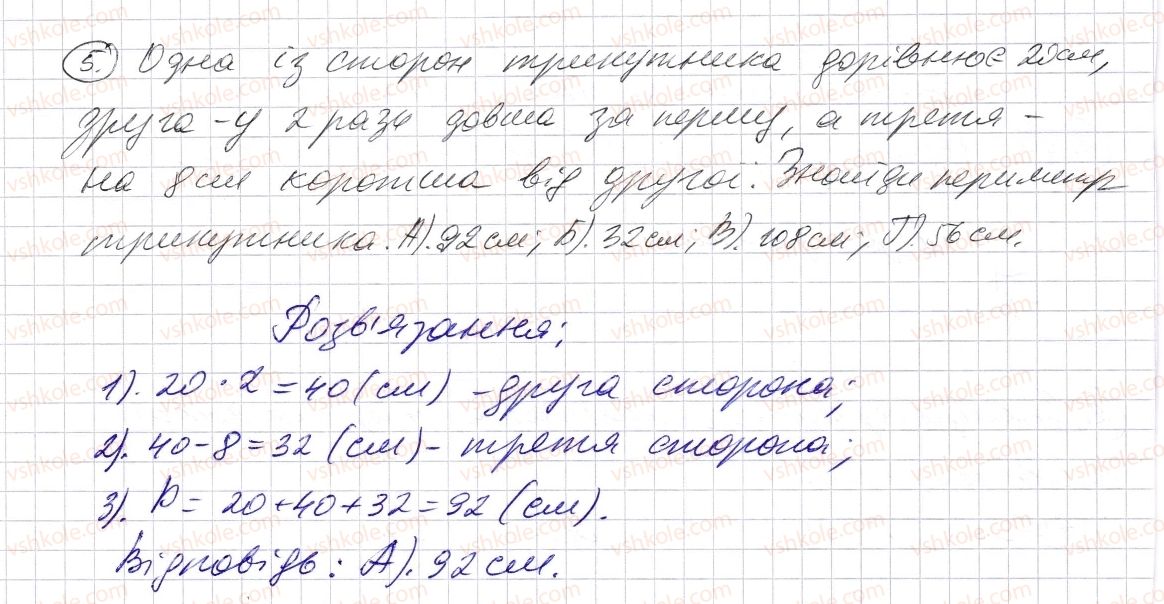 5. Одна із сторон трикутника дорівнює 20 см,
друга - у 2 рази довша за першу, а третя -
на 8 см коротша від другої. Знайди периметр
трикутника. А). 92 см; Б). 32 см; В). 108 см; Г). 56 см.
Розв'язання;
1). 20 · 2 = 40 (см) - друга сторона;
2). 40 - 8 = 32 (см) - третя сторона;
3). P = 20 + 40 + 32 = 92 (см).
Відповідь: А). 92 см.